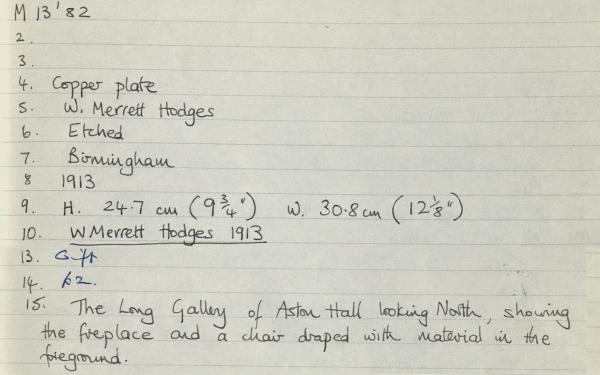 M 13'82
2.
3.
4. Copper plate
5. W. Merrett Hodges
6. Etched
7. Birmingham
8 1913
9. H. 24.7 cm (9 3/4") W. 30.8 cm (12 1/8")
10. W Merrett Hodges 1913
13. Gift
14. £2.
15. The Long Gallery of Aston Hall looking North, showing
the fireplace and a chair draped with material in the
foreground.